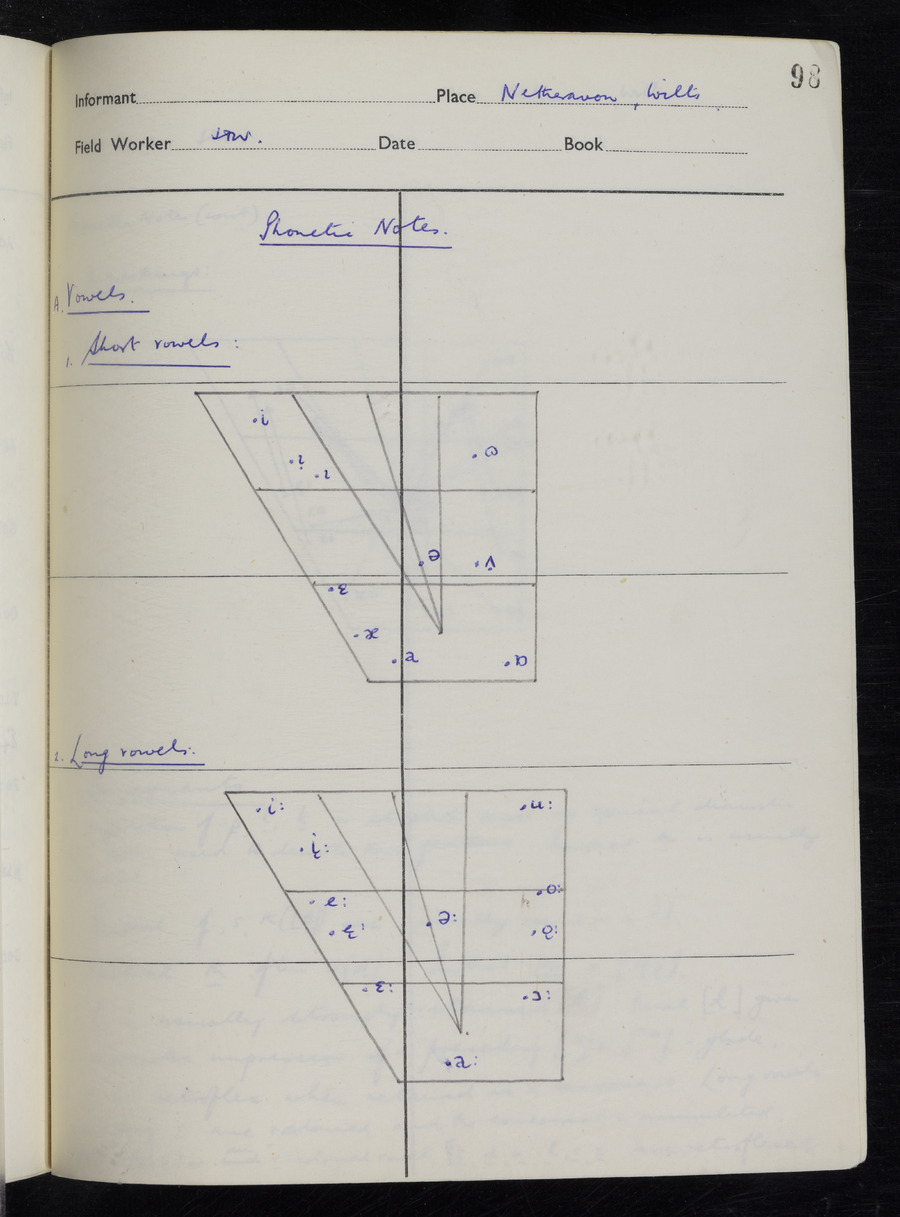 98
Informant Place Netheravon, Wilts
Field Worker Date Book
Phonetic Notes.
A. Vowels.
1. Short vowels:
.i
.i̞
.ɩ
.ɷ
.ə
.ʌ̇
.ɛ
.æ
.a
.ɒ
2. Long vowels:
.i:
.u:
.i̞:
.o:
.e:
.ə:
.e̞:
.o̞:
.ɛ:
.ɔ:
.a: